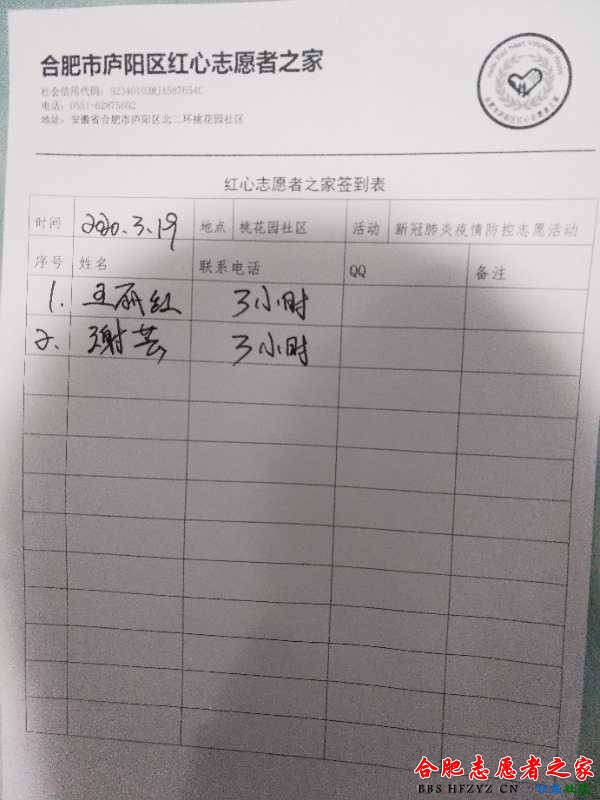 合肥市庐阳区红心志愿者之家
社会信用代码: 92340103MJA587654C
电话: 0551-62875602
地址: 安徽省合肥市庐阳区北二环桃花园社区
合肥市庐阳区红心志愿者之家
红心志愿者之家签到表
时间 2020.3.19 地点 桃花园社区 活动 新冠肺炎疫情防控志愿活动
序号 姓名 联系电话 QQ 备注
1. 王丽红 3小时
2. 谢芸 3小时
合肥志愿者之家
BBS HFZYZ CN